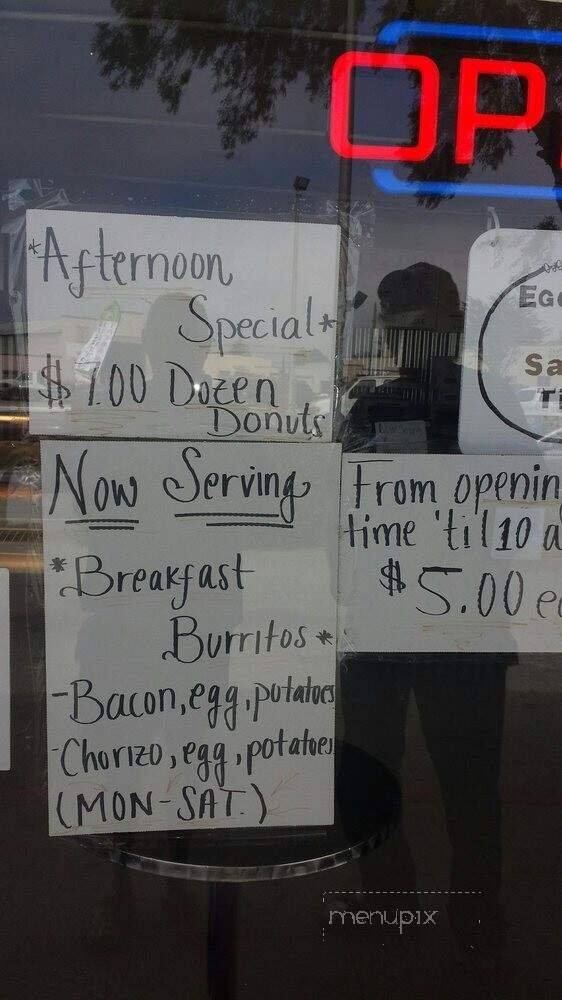 OPE
*Afternoon
Special*
$ 7.00 Dozen
Donuts
Now Serving
*Breakfast
Burritos*
-Bacon, egg, potatoes
-Chorizo, egg, potatoes
(MON-SAT.)
Egg
Sa
Ti
From openin
time 'til 10 a
$5.00 e
menupix